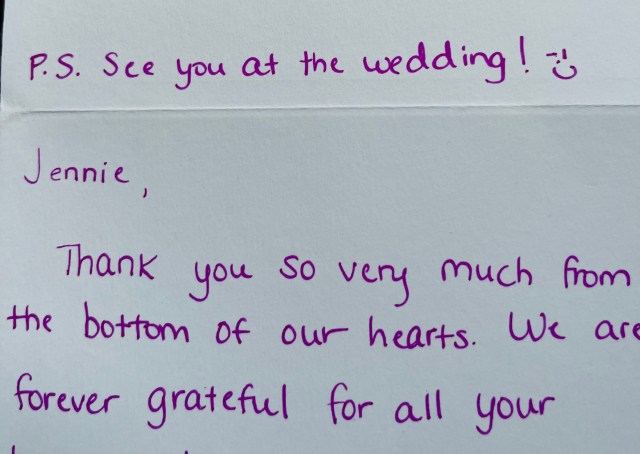 P.S. See you at the wedding! :)
Jennie,
Thank you so very much from
the bottom of our hearts. We are
forever grateful for all your